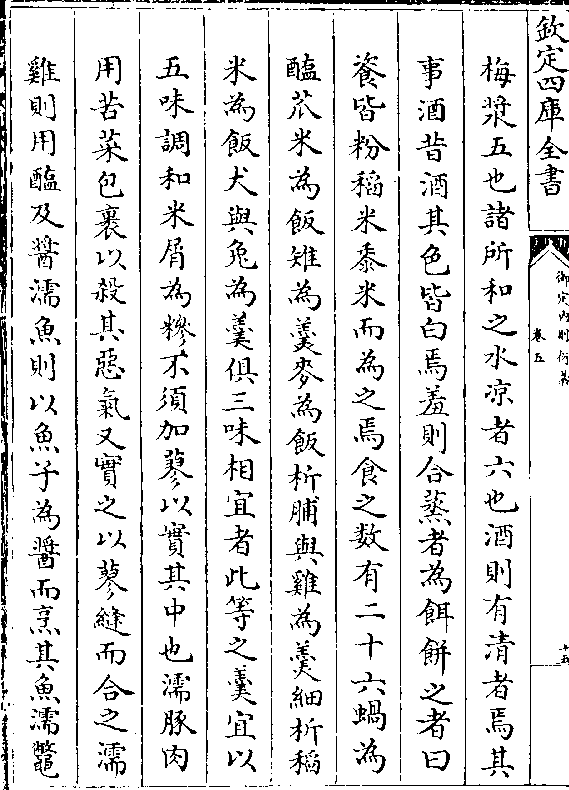 欽定四庫全書
御定內則衍義
卷五
十五
梅漿五也諸所和之水凉者六也酒則有清者焉其
事酒昔酒其色皆白焉羞則合蒸者為餌餅之者曰
餈皆粉稻米黍米而為之焉食之数有二十六蝸為
醢苽米為飯雉為羹麥為飯析脯與雞為羹細析稻
米為飯犬與兔為羹俱三味相宜者此等之羹宜以
五味調和米屑為糝不須加蓼以實其中也濡豚肉
用苦菜包裹以殺其惡氣又實之以蓼縫而合之濡
雞則用醢及醬濡魚則以魚子為醬而烹其魚濡鼈